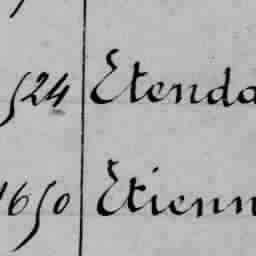 524 Etenda
1650 Etienn